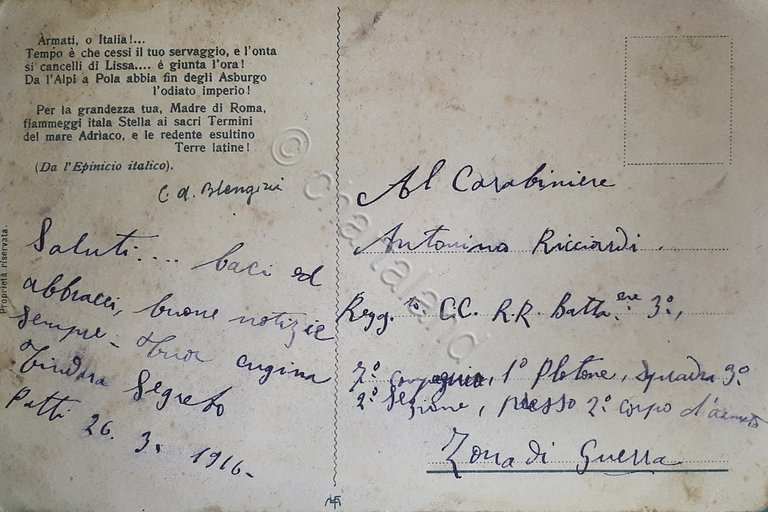 Armati, o Italia!...
Tempo è che cessi il tuo servaggio, e l'onta
si cancelli di Lissa.... é giunta l'ora!
Da l'Alpi a Pola abbia fin degli Asburgo
l'odiato imperio!
Per la grandezza tua, Madre di Roma,
fiammeggi itala Stella ai sacri Termini
del mare Adriaco, e le redente esultino
Terre latine!
(Da l'Epinicio italico).
C. A. Blengini
Saluti.... baci ed
abbracci, buone notizie
sempre - tua cugina
Tindara Segreto
Patti 26. 3. 1916-
Proprietà riservata.
Al Carabiniere
Antonino Ricciardi.
Regg.to C.C. R.R. Batta.one 3º,
7º compagnia, 1º Plotone, squadra 3º
2º Sezione, presso 2º corpo d'armata
Zona di Guerra
© chartaland